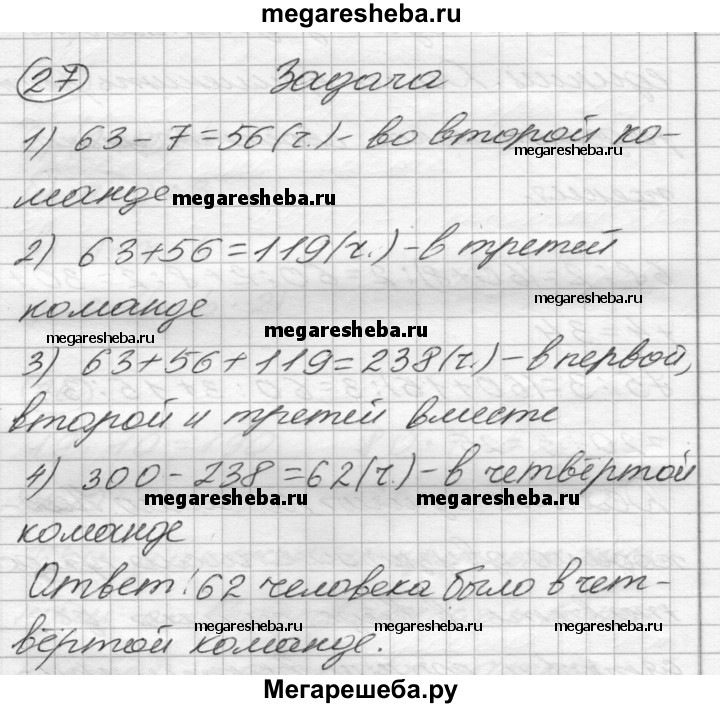 megaresheba.ru
27 Задача
1) 63 - 7 = 56 (ч.) - во второй ко-
megaresheba.ru
манде
megaresheba.ru
2) 63 + 56 = 119 (ч.) - в третей
megaresheba.ru
команде
megaresheba.ru
megaresheba.ru
3) 63 + 56 + 119 = 238 (ч.) - в первой,
второй и третей вместе
4) 300 - 238 = 62 (ч.) - в четвёртой
megaresheba.ru megaresheba.ru
команде
Ответ: 62 человека было в чет-
megaresheba.ru megaresheba.ru megaresheba.ru
вёртой команде.
Мегарешеба.ру